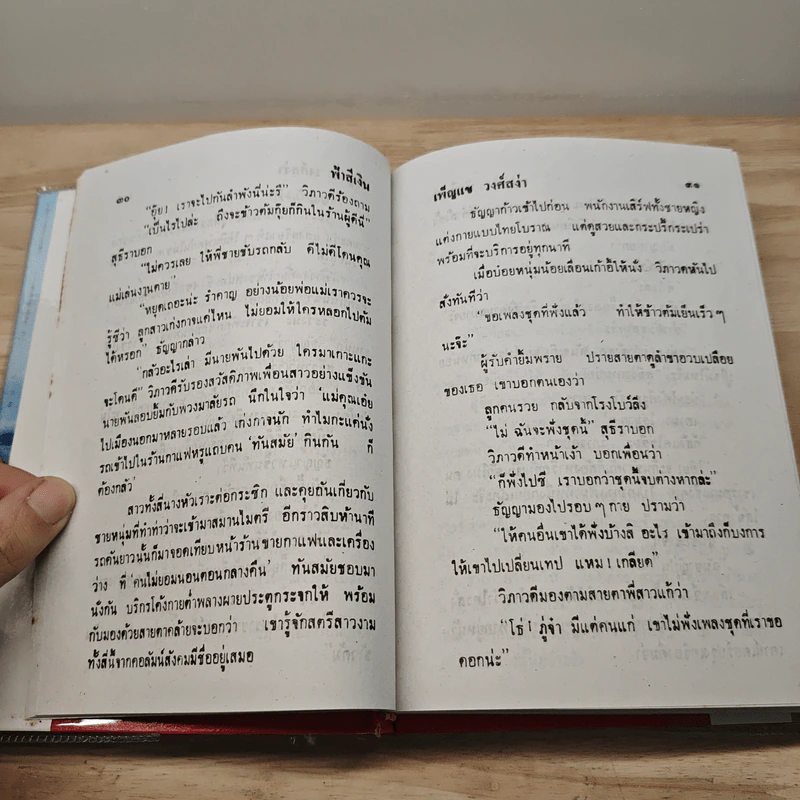 ๓๐ ฟ้าสีเงิน
"อุ๊ย! เราจะไปกันลำพังนี่น่ะรึ" วิภาวดีร้องถาม
"เป็นไรไปล่ะ ถึงจะข้าวต้มกุ๊ยก็กินในร้านผู้ดีนี่"
สุธีราบอก
"ไม่ควรเลย ให้พี่ชายขับรถกลับ ดีไม่ดีโดนคุณ
แม่เล่นงานตาย"
"หยุดเถอะน่ะ รำคาญ อย่างน้อยพ่อแม่เราควรจะ
รู้ซีว่า ลูกสาวเก่งกาจแค่ไหน ไม่ยอมให้ใครหลอกไปต้ม
ได้หรอก" ธัญญากล่าว
"กลัวอะไรเล่า มีนายพันไปด้วย ใครมาเกาะแกะ
จะโดนดี" วิภาวดีรับรองสวัสดิภาพเพื่อนสาวอย่างแข็งขัน
นายพันลอบยิ้มกับพวงมาลัยรถ นึกในใจว่า 'แม่คุณเอ๋ย
ไปเมืองนอกมาหลายรอบแล้ว เก่งกาจนัก ทำไมกะแค่นั่ง
รถเข้าไปในร้านกาแฟหรูแถบคน 'ทันสมัย' กินกัน ก็
ต้องกลัว'
สาวทั้งสี่นางหัวเราะต่อกระซิก และคุยถันเกี่ยวกับ
ชายหนุ่มที่ทำท่าว่าจะเข้ามาสมานไมตรี อีกราวสิบห้านาที
รถคันยาวนั้นก็มาจอดเทียบหน้าร้านขายกาแฟและเครื่อง
ว่าง ที่ 'คนไม่ยอมนอนตอนกลางคืน' ทันสมัยชอบมา
นั่งกัน บริกรโค้งกายต่ำพลางผายประตูกระจกให้ พร้อม
กับมองด้วยสายตาคล้ายจะบอกว่า เขารู้จักสตรีสาวงาม
ทั้งสี่นี้จากคอลัมน์สังคมมีชื่ออยู่เสมอ
เพ็ญแข วงศ์สง่า ๓๑
ธัญญาก้าวเข้าไปก่อน พนักงานเสิร์ฟทั้งชายหญิง
แต่งกายแบบไทยโบราณ แต่ดูสวยและกระปรี้กระเปร่า
พร้อมที่จะบริการอยู่ทุกนาที
เมื่อบ๋อยหนุ่มน้อยเลื่อนเก้าอี้ให้นั่ง วิภาวดีหันไป
สั่งทันทีว่า
"ขอเพลงชุดที่ฟังแล้ว ทำให้ข้าวต้มเย็นเร็วๆ
นะจ๊ะ"
ผู้รับคำยิ้มพราย ปรายสายตาดูลำขาอวบเปลือย
ของเธอ เขาบอกตนเองว่า
ลูกคนรวย กลับจากโรงโบว์ลิ่ง
"ไม่ ฉันจะฟังชุดนี้" สุธีราบอก
วิภาวดีทำหน้าเง้า บอกเพื่อนว่า
"ก็ฟังไปซี เราบอกว่าชุดนี้จบต่างหากล่ะ"
ธัญญามองไปรอบๆ กาย ปรามว่า
"ให้คนอื่นเขาได้ฟังบ้างสิ อะไร เข้ามาถึงก็บงการ
ให้เขาไปเปลี่ยนเทป แหม! เกลียด"
วิภาวดีมองตามสายตาพี่สาวแก้ว่า
"โธ่! ภู่จ๋า มีแต่คนแก่ เขาไม่ฟังเพลงชุดที่เราขอ
ดอกน่ะ"